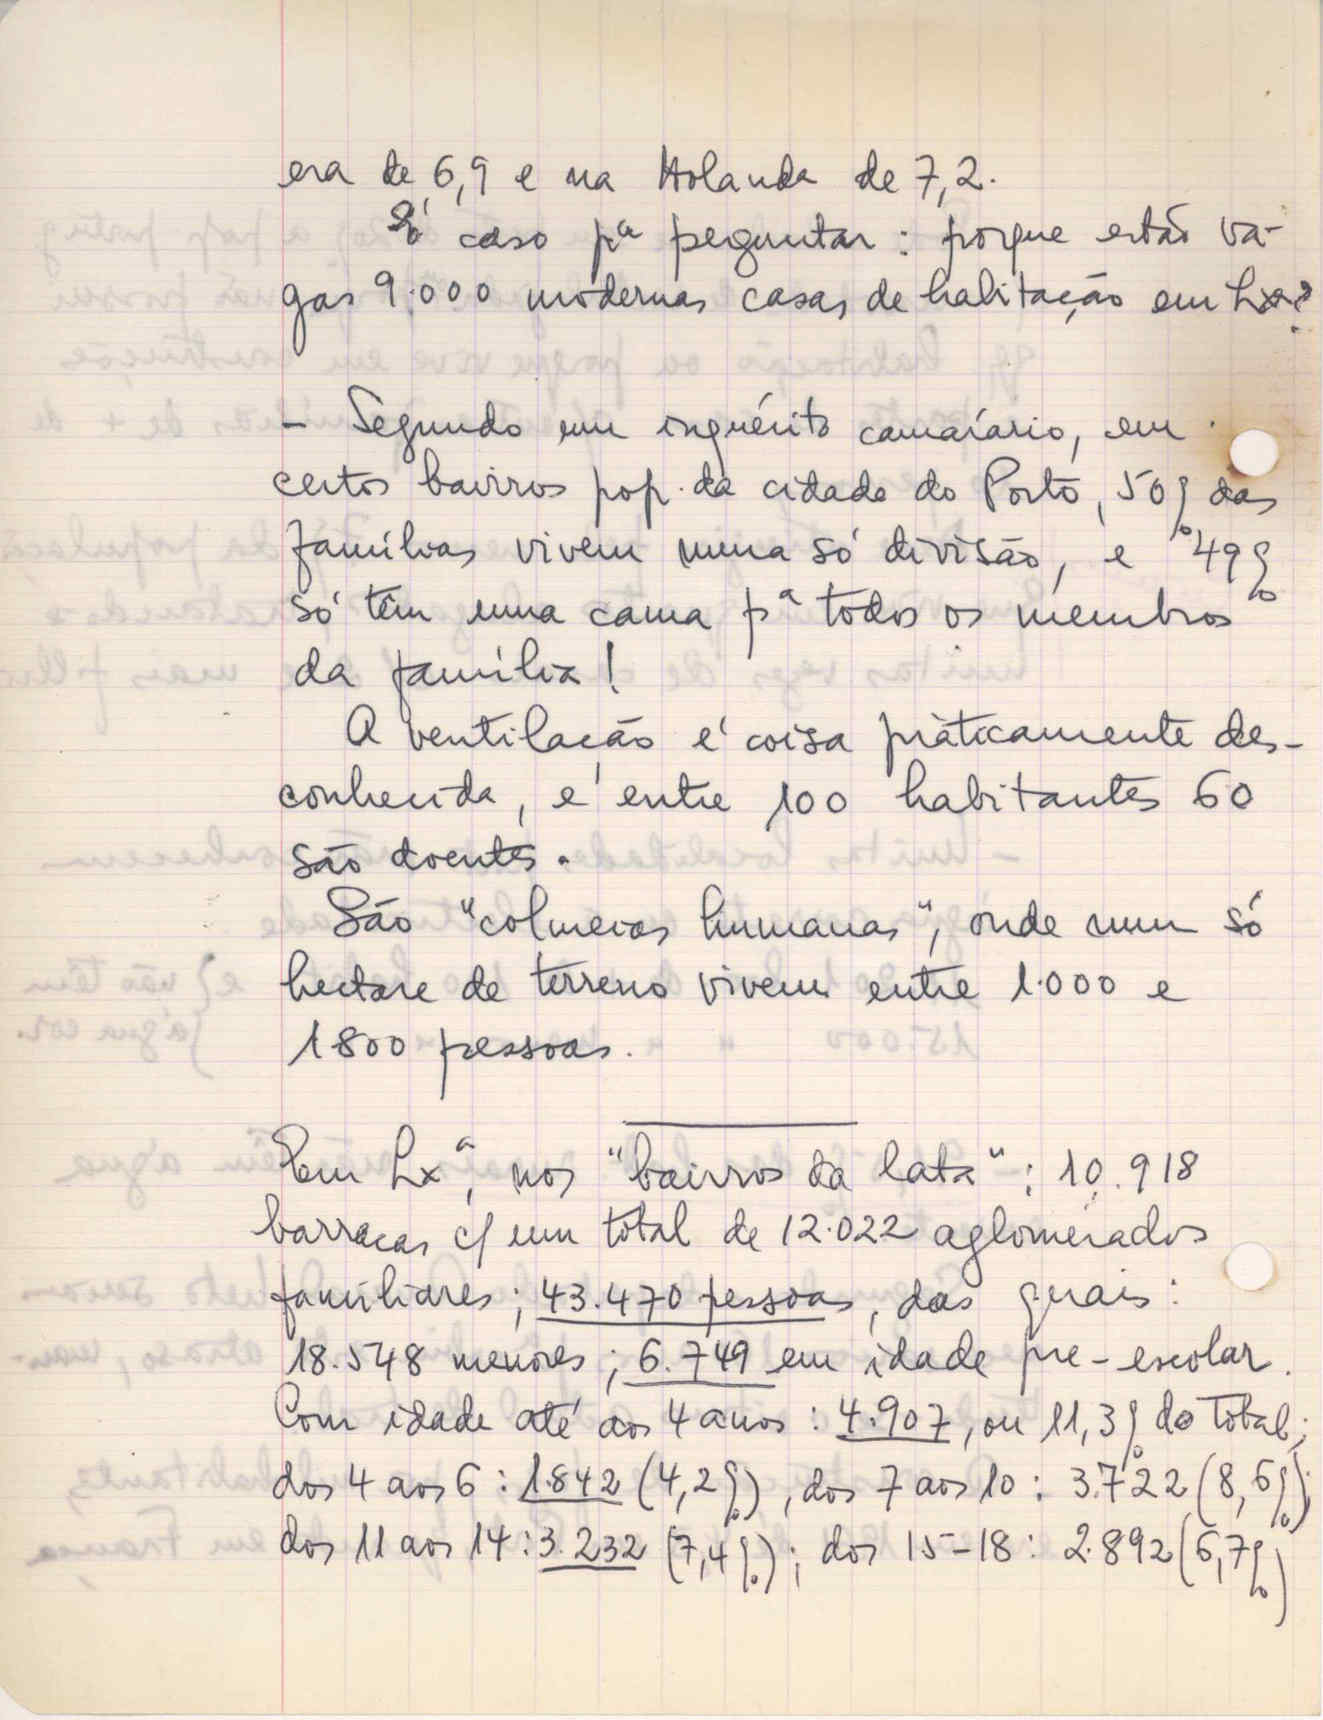 era de 6,9 e na Holanda de 7,2.
É caso pª perguntar: porque estão va-
gas 9.000 modernas casas de habitação em Lxª?
- Segundo um inquérito camarário, em
certos bairros pop. da cidade do Porto, 50% das
famílias vivem numa só divisão, e 49%
só têm uma cama pª todos os membros
da família!
A ventilação é coisa pràticamente des-
conhecida, e entre 100 habitantes 60
são doentes.
São "colmeias humanas", onde num só
hectare de terreno vivem entre 1.000 e
1800 pessoas.
Em Lxª, nos "bairros da lata": 10.918
barracas c/ um total de 12.022 aglomerados
familiares; 43.470 pessoas, das quais:
18.548 menores; 6.749 em idade pre-escolar.
Com idade até aos 4 anos: 4.907, ou 11,3% do total;
dos 4 aos 6: 1.842 (4,2%), dos 7 aos 10: 3.722 (8,6%);
dos 11 aos 14: 3.232 (7,4%); dos 15-18: 2.892 (6,7%)